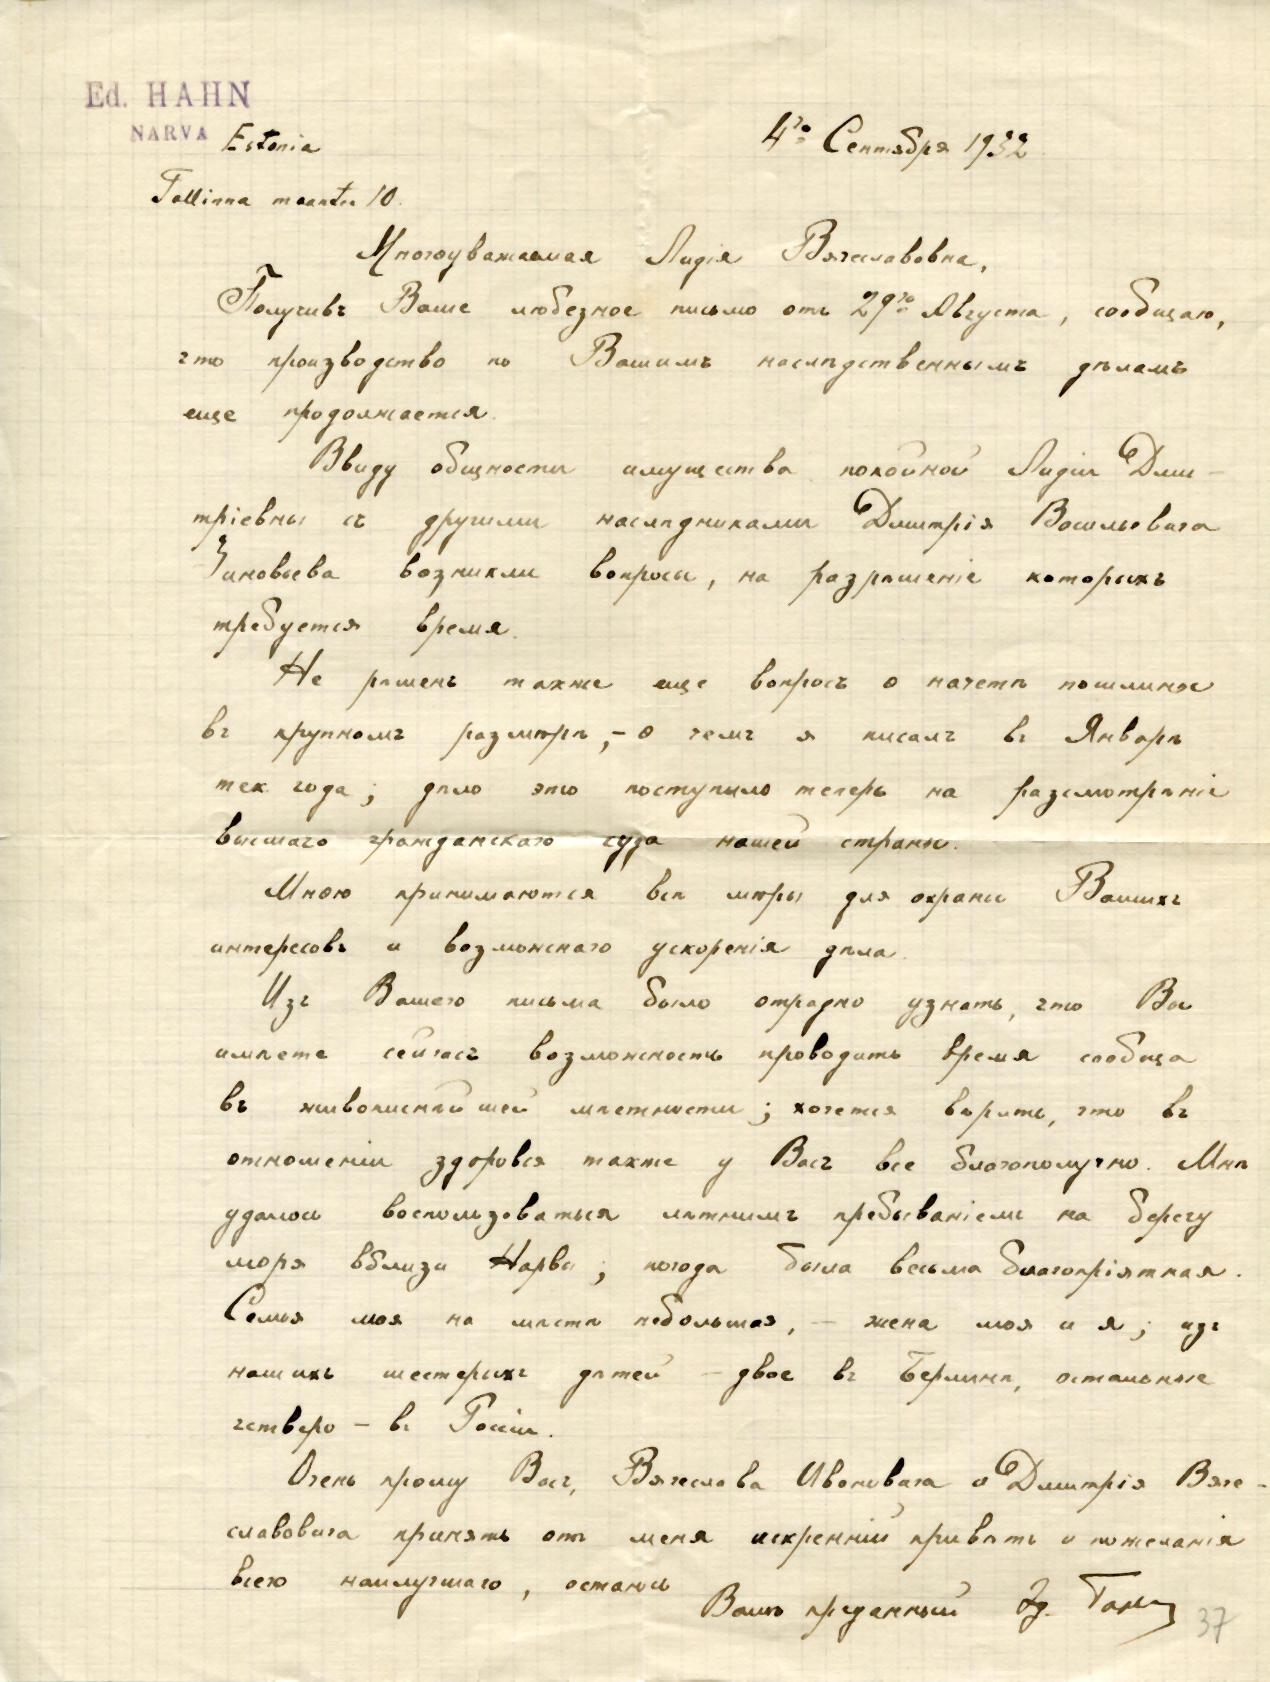 Ed. HAHN
NARVA
Estonia
4го Сентября 1932
Tallinna maantee 10.
Многоуважаемая Лидія Вячеславовна,
Получивъ Ваше любезное письмо отъ 29го Августа, сообщаю,
что производство по Вашимъ наслѣдственнымъ дѣламъ
еще продолжается.
Ввиду общности имущества покойной Лидіи Дми-
тріевны съ другими наслѣдниками Дмитрія Васильевича
Зиновьева возникли вопросы, на разрѣшеніе которыхъ
требуется время.
Не рѣшенъ также еще вопросъ о начетѣ пошлинъ
въ крупномъ размѣрѣ, – о чемъ я писалъ въ Январѣ
тек года; дѣло это поступило теперь на разсмотрѣніе
высшаго гражданскаго суда нашей страны.
Мною принимаются всѣ мѣры для охраны Вашихъ
интересовъ и возможнаго ускоренія дѣла.
Изъ Вашего письма было отрадно узнать, что Вы
имѣете сейчасъ возможность проводить время сообща
въ живописнѣйшей мѣстности; хочется вѣрить, что въ
отношеніи здоровья также у Васъ все благополучно. Мнѣ
удалось воспользоваться лѣтнимъ пребываніемъ на берегу
моря вблизи Нарвы; погода была весьма благопріятная.
Семья моя на мѣстѣ небольшая, – жена моя и я; изъ
нашихъ шестерыхъ дѣтей – двое въ Берлинѣ, остальные
четверо – въ Россіи.
Очень прошу Васъ, Вячеслава Ивановича и Дмитрія Вяче-
славовича принять отъ меня искренній привѣтъ и пожеланія
всего наилучшаго, остаюсь
Вашъ преданный Эд. Ганъ
37